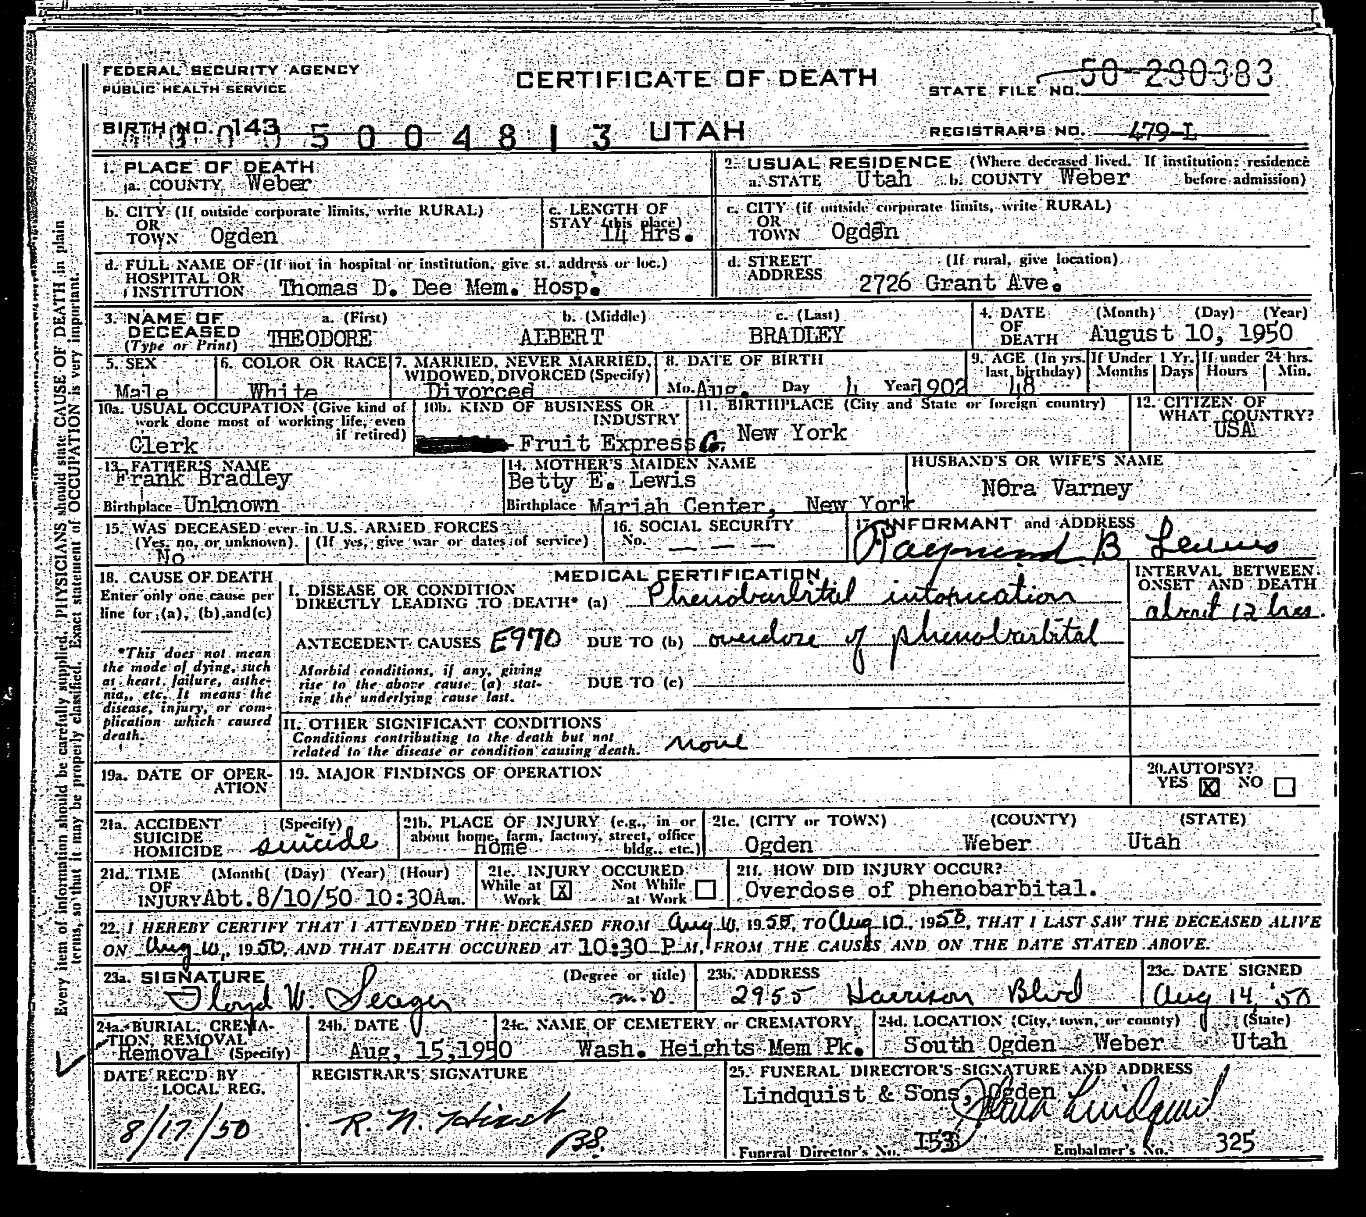 FEDERAL SECURITY AGENCY
PUBLIC HEALTH SERVICE
CERTIFICATE OF DEATH
STATE FILE NO. 50-290383
BIRTH NO. 143
5 0 0 4 8 1 3 UTAH
REGISTRAR'S NO. 479-L
1. PLACE OF DEATH
a. COUNTY Weber
2. USUAL RESIDENCE (Where deceased lived. If institution: residence before admission)
a. STATE Utah b. COUNTY Weber
b. CITY (If outside corporate limits, write RURAL)
OR
TOWN Ogden
c. LENGTH OF
STAY (this place)
14 Hrs.
c. CITY (if outside corporate limits, write RURAL)
OR
TOWN Ogden
d. FULL NAME OF (If not in hospital or institution, give st. address or loc.)
HOSPITAL OR
INSTITUTION Thomas D. Dee Mem. Hosp.
d. STREET (If rural, give location)
ADDRESS 2726 Grant Ave.
3. NAME OF DECEASED
(Type or Print)
a. (First) THEODORE
b. (Middle) ALBERT
c. (Last) BRADLEY
4. DATE OF DEATH (Month) (Day) (Year)
August 10, 1950
5. SEX
Male
6. COLOR OR RACE
White
7. MARRIED, NEVER MARRIED,
WIDOWED, DIVORCED (Specify)
Divorced
8. DATE OF BIRTH
Mo. Aug. Day 4 Year 1902
9. AGE (In yrs. last birthday)
48
If Under 1 Yr. Months Days
If under 24 hrs. Hours Min.
10a. USUAL OCCUPATION (Give kind of
work done most of working life, even
if retired)
Clerk
10b. KIND OF BUSINESS OR
INDUSTRY
Fruit Express Co.
11. BIRTHPLACE (City and State or foreign country)
New York
12. CITIZEN OF
WHAT COUNTRY?
USA
13. FATHER'S NAME
Frank Bradley
Birthplace Unknown
14. MOTHER'S MAIDEN NAME
Betty E. Lewis
Birthplace Mariah Center, New York
HUSBAND'S OR WIFE'S NAME
Nora Varney
15. WAS DECEASED ever in U.S. ARMED FORCES
(Yes, no, or unknown) (If yes, give war or dates of service)
No
16. SOCIAL SECURITY
No. — — —
17. INFORMANT and ADDRESS
Raymond B Lewis
18. CAUSE OF DEATH
Enter only one cause per
line for (a), (b), and (c)
*This does not mean
the mode of dying, such
as heart failure, asthe-
nia, etc. It means the
disease, injury, or com-
plication which caused
death.
MEDICAL CERTIFICATION
I. DISEASE OR CONDITION
DIRECTLY LEADING TO DEATH* (a) Phenobarbital intoxication
ANTECEDENT CAUSES E970 DUE TO (b) overdose of phenobarbital
Morbid conditions, if any, giving
rise to the above cause (a) stat-
ing the underlying cause last.
DUE TO (c)
INTERVAL BETWEEN
ONSET AND DEATH
about 12 hrs.
II. OTHER SIGNIFICANT CONDITIONS
Conditions contributing to the death but not
related to the disease or condition causing death. none
19a. DATE OF OPER-
ATION
19. MAJOR FINDINGS OF OPERATION
20. AUTOPSY?
YES X NO
21a. ACCIDENT (Specify)
SUICIDE
HOMICIDE suicide
21b. PLACE OF INJURY (e.g., in or
about home, farm, factory, street, office
bldg., etc.)
Home
21c. (CITY or TOWN) (COUNTY) (STATE)
Ogden Weber Utah
21d. TIME (Month) (Day) (Year) (Hour)
OF
INJURY Abt. 8/10/50 10:30Am.
21e. INJURY OCCURED
While at Work X Not While at Work
21f. HOW DID INJURY OCCUR?
Overdose of phenobarbital.
22. I HEREBY CERTIFY THAT I ATTENDED THE DECEASED FROM Aug 10, 1950, TO Aug 10, 1950, THAT I LAST SAW THE DECEASED ALIVE
ON Aug 10, 1950, AND THAT DEATH OCCURED AT 10:30 P M, FROM THE CAUSES AND ON THE DATE STATED ABOVE.
23a. SIGNATURE (Degree or title)
Floyd W. Seager M.D
23b. ADDRESS
2955 Harrison Blvd
23c. DATE SIGNED
Aug 14, '50
24a. BURIAL, CREMA-
TION, REMOVAL
Removal (Specify)
24b. DATE
Aug, 15, 1950
24c. NAME OF CEMETERY or CREMATORY
Wash. Heights Mem Pk.
24d. LOCATION (City, town, or county) (State)
South Ogden Weber Utah
DATE REC'D BY
LOCAL REG.
8/17/50
REGISTRAR'S SIGNATURE
R. N. Hirst
BB.
25. FUNERAL DIRECTOR'S SIGNATURE AND ADDRESS
Lindquist & Sons, Ogden
John Lindquist
Funeral Director's No. 153 Embalmer's No. 325
Every item of information should be carefully supplied. PHYSICIANS should state CAUSE OF DEATH in plain
terms, so that it may be properly classified. Exact statement of OCCUPATION is very important.